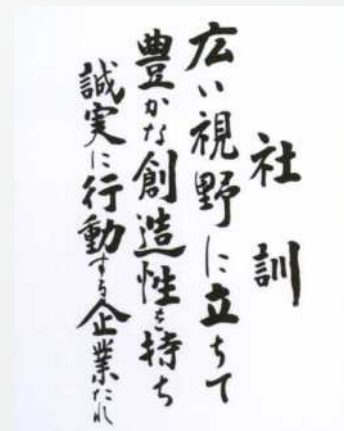 社訓
広い視野に立ちて
豊かな創造性を持ち
誠実に行動する企業たれ